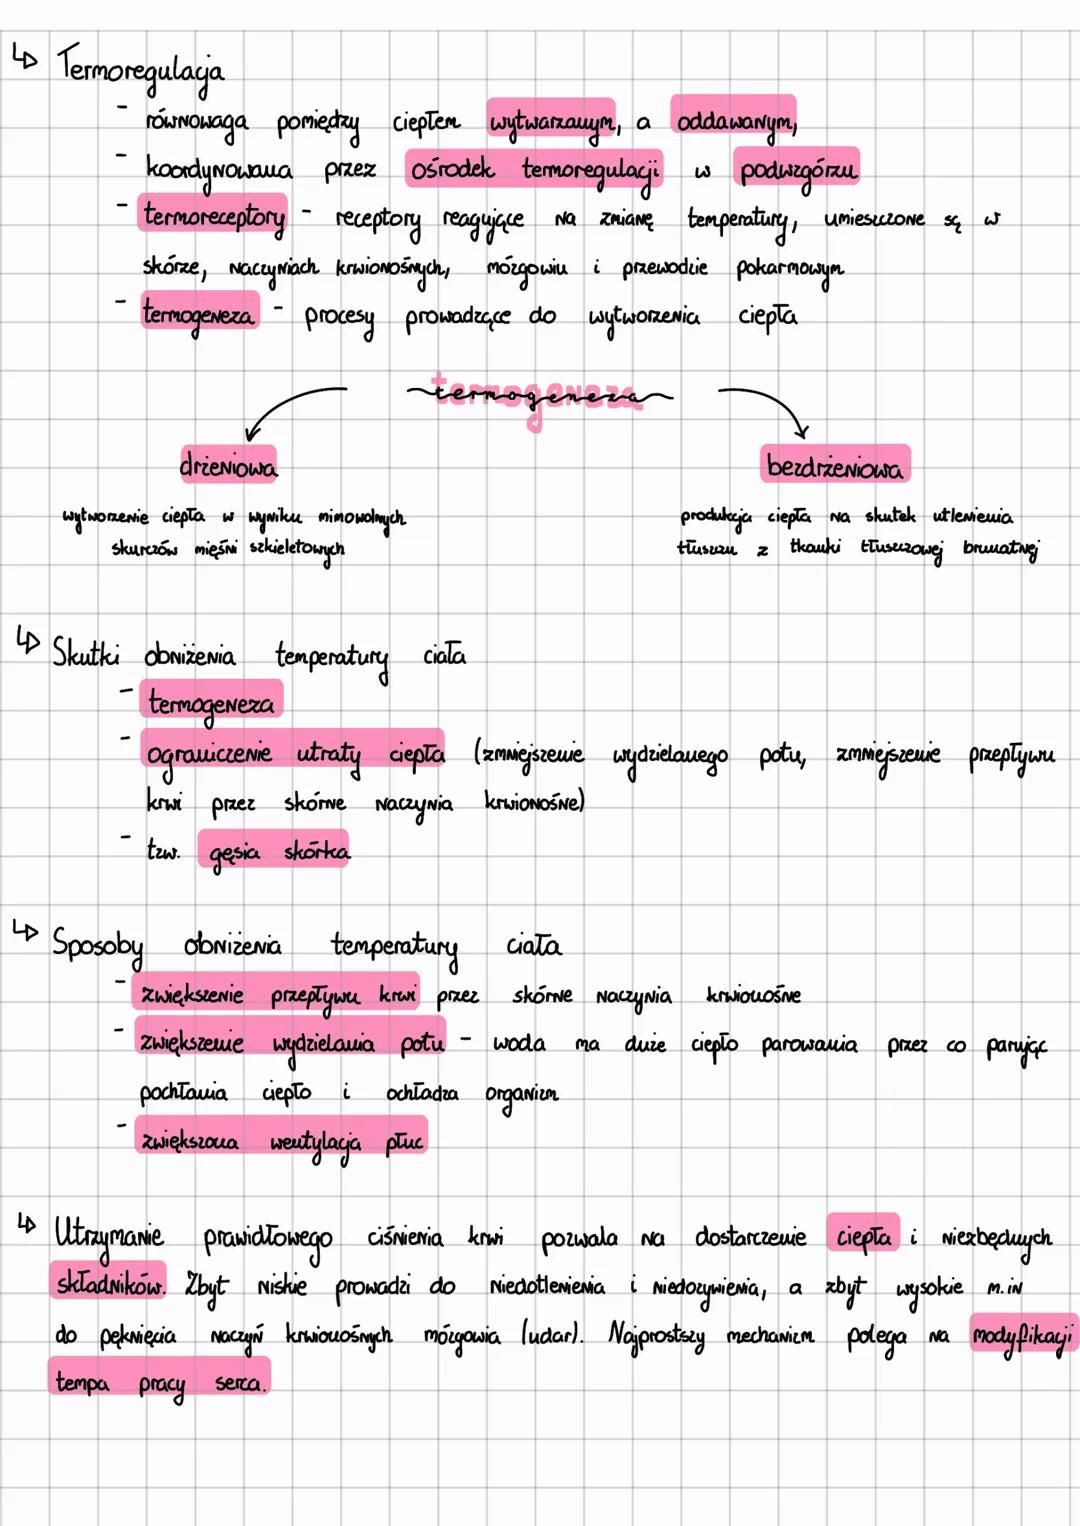 ↳ Termoregulacja
- równowaga pomiędzy ciepłem wytwarzanym, a oddawanym,
- koordynowana przez ośrodek termoregulacji w podwzgórzu
- termoreceptory - receptory reagujące na zmianę temperatury, umieszczone są w
skórze, naczyniach krwionośnych, mózgowiu i przewodzie pokarmowym
- termogeneza - procesy prowadzące do wytworzenia ciepła
termogeneza
drżeniowa
bezdrżeniowa
wytworzenie ciepła w wyniku mimowolnych
skurczów mięśni szkieletowych
produkcja ciepła na skutek utlenienia
tłuszczu z tkanki tłuszczowej brunatnej
↳ Skutki obniżenia temperatury ciała
- termogeneza
- ograniczenie utraty ciepła (zmniejszenie wydzielanego potu, zmniejszenie przepływu
krwi przez skórne naczynia krwionośne)
- tzw. gęsia skórka
↳ Sposoby obniżenia temperatury ciała
- zwiększenie przepływu krwi przez skórne naczynia krwionośne
- zwiększenie wydzielania potu - woda ma duże ciepło parowania przez co parując
pochłania ciepło i ochładza organizm
- zwiększona wentylacja płuc
↳ Utrzymanie prawidłowego ciśnienia krwi pozwala na dostarczenie ciepła i niezbędnych
składników. Zbyt niskie prowadzi do niedotlenienia i niedożywienia, a zbyt wysokie m.in
do pęknięcia naczyń krwionośnych mózgowia (udar). Najprostszy mechanizm polega na modyfikacji
tempa pracy serca.